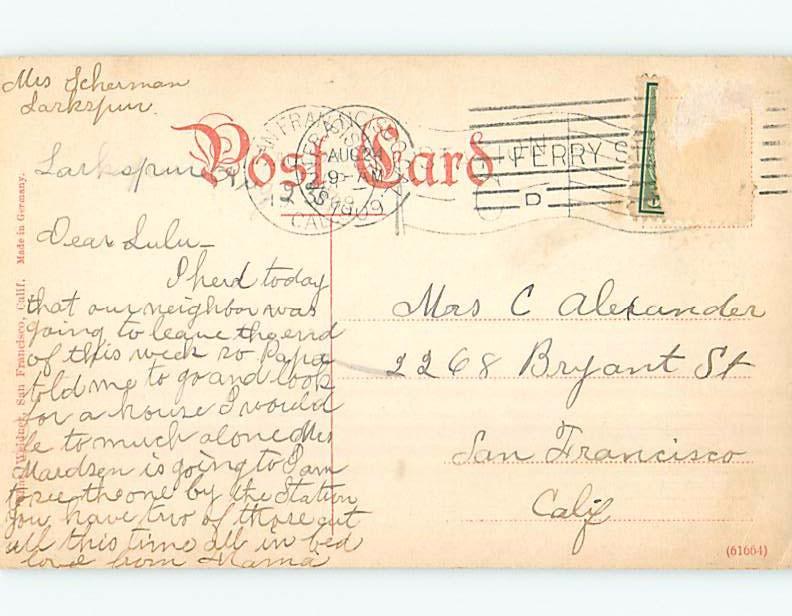 Mrs Scherman
Larkspur
Post Card
SAN FRANCISCO
AUG 24
9- AM
1909
CAL
FERRY S
D
Larkspur
Dear Lulu-
I herd today
that our neighbor was
going to leave the end
of this week so Papa
told me to go and look
for a house I would
be to much alone Mrs
Mardsen is going to I am
to see the one by the Station
you have two of those out
all this time all in bed
love from Mama
Mrs C Alexander
2268 Bryant St
San Francisco
Calif
Weidner, San Francisco, Calif. Made in Germany.
(61664)